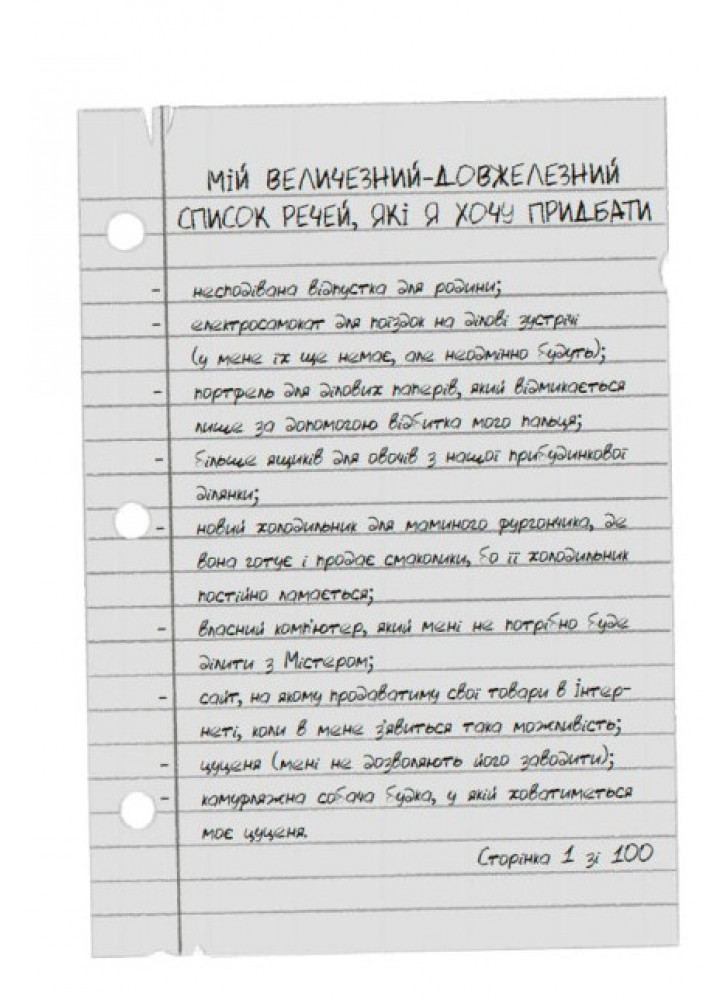 МІЙ ВЕЛИЧЕЗНИЙ-ДОВЖЕЛЕЗНИЙ
СПИСОК РЕЧЕЙ, ЯКІ Я ХОЧУ ПРИДБАТИ
- несподівана відпустка для родини;
- електросамокат для поїздок на ділові зустрічі
(у мене їх ще немає, але неодмінно будуть);
- портфель для ділових паперів, який відмикається
лише за допомогою відбитка мого пальця;
- більше ящиків для овочів з нашої прибудинкової
ділянки;
- новий холодильник для маминого фургончика, де
вона готує і продає смаколики, бо її холодильник
постійно ламається;
- власний комп'ютер, який мені не потрібно буде
ділити з Містером;
- сайт, на якому продаватиму свої товари в Інтер-
неті, коли в мене з'явиться така можливість;
- цуценя (мені не дозволяють його заводити);
- камуфляжна собача будка, у якій ховатиметься
моє цуценя.
Сторінка 1 зі 100